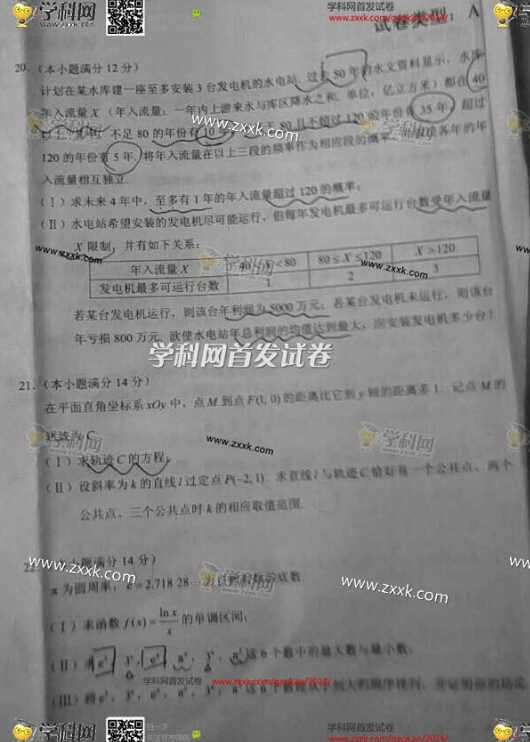 学科网
学科网首发试卷
www.zxxk.com/gaokao/2014/
学科网
试卷类型 A
20.(本小题满分 12 分)
计划在某水库建一座至多安装 3 台发电机的水电站. 过去 50 年的水文资料显示,水库
年入流量 X(年入流量:一年内上游来水与库区降水之和. 单位:亿立方米)都在 40
以上. 其中,不足 80 的年份有 10 年, 80 且不超过 120 的年份有 35 年, 超过
www.zxxk.com
120 的年份有 5 年. 将年入流量在以上三段的频率作为相应段的概率, 各年的年
入流量相互独立.
(Ⅰ)求未来 4 年中,至多有 1 年的年入流量超过 120 的概率;
(Ⅱ)水电站希望安装的发电机尽可能运行,但每年发电机最多可运行台数受年入流量
X 限制,并有如下关系:
www.zxxk.com
学科网
www.zxxk.com
年入流量 X 40 X < 80 80 ≤ X ≤ 120 X > 120
发电机最多可运行台数 1 2 3
若某台发电机运行,则该台年利润为 5000 万元;若某台发电机未运行,则该台
年亏损 800 万元. 欲使水电站年总利润的均值达到最大,应安装发电机多少台?
学科网首发试卷
21.(本小题满分 14 分)
在平面直角坐标系 xOy 中,点 M 到点 F(1, 0) 的距离比它到 y 轴的距离多 1. 记点 M 的
轨迹为 C.
学科网
www.zxxk.com
学科网
(Ⅰ)求轨迹 C 的方程;
(Ⅱ)设斜率为 k 的直线 l 过定点 P(−2, 1). 求直线 l 与轨迹 C 恰好有一个公共点、两个
公共点、三个公共点时 k 的相应取值范围.
22. 小题满分 14 分)
www.zxxk.com
学科网
www.zxxk.com
π 为圆周率,e = 2.718 28… 为自然对数的底数.
(Ⅰ)求函数 f(x) = ln x / x 的单调区间;
(Ⅱ)求 e³, 3ᵉ, 这 6 个数中的最大数与最小数;
学科网首发试卷
www.zxxk.com/gaokao/2014/
学科网首发试卷
www.zxxk.com/gaokao/2014/
(Ⅲ)将 e³, 3ᵉ, 这 6 个数按从小到大的顺序排列,并证明你的结论.
学科网
扫一下
关注官方微信
学科网